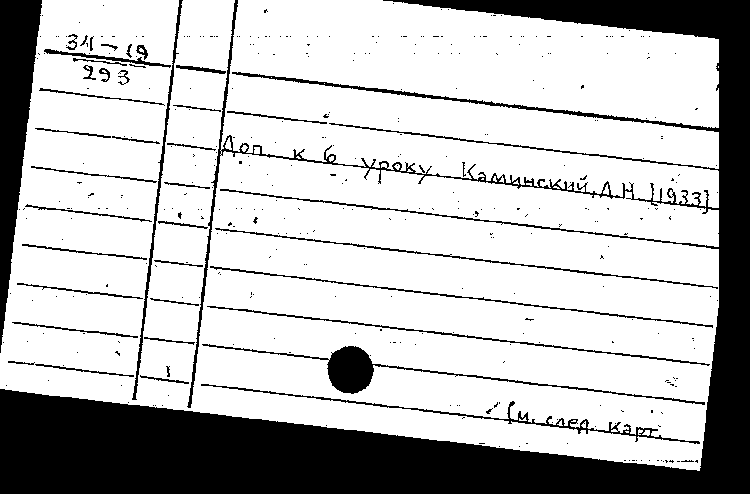 34-19
293
Доп. к 6 уроку. Каминский, Д.Н. [1933]
См. след. карт.